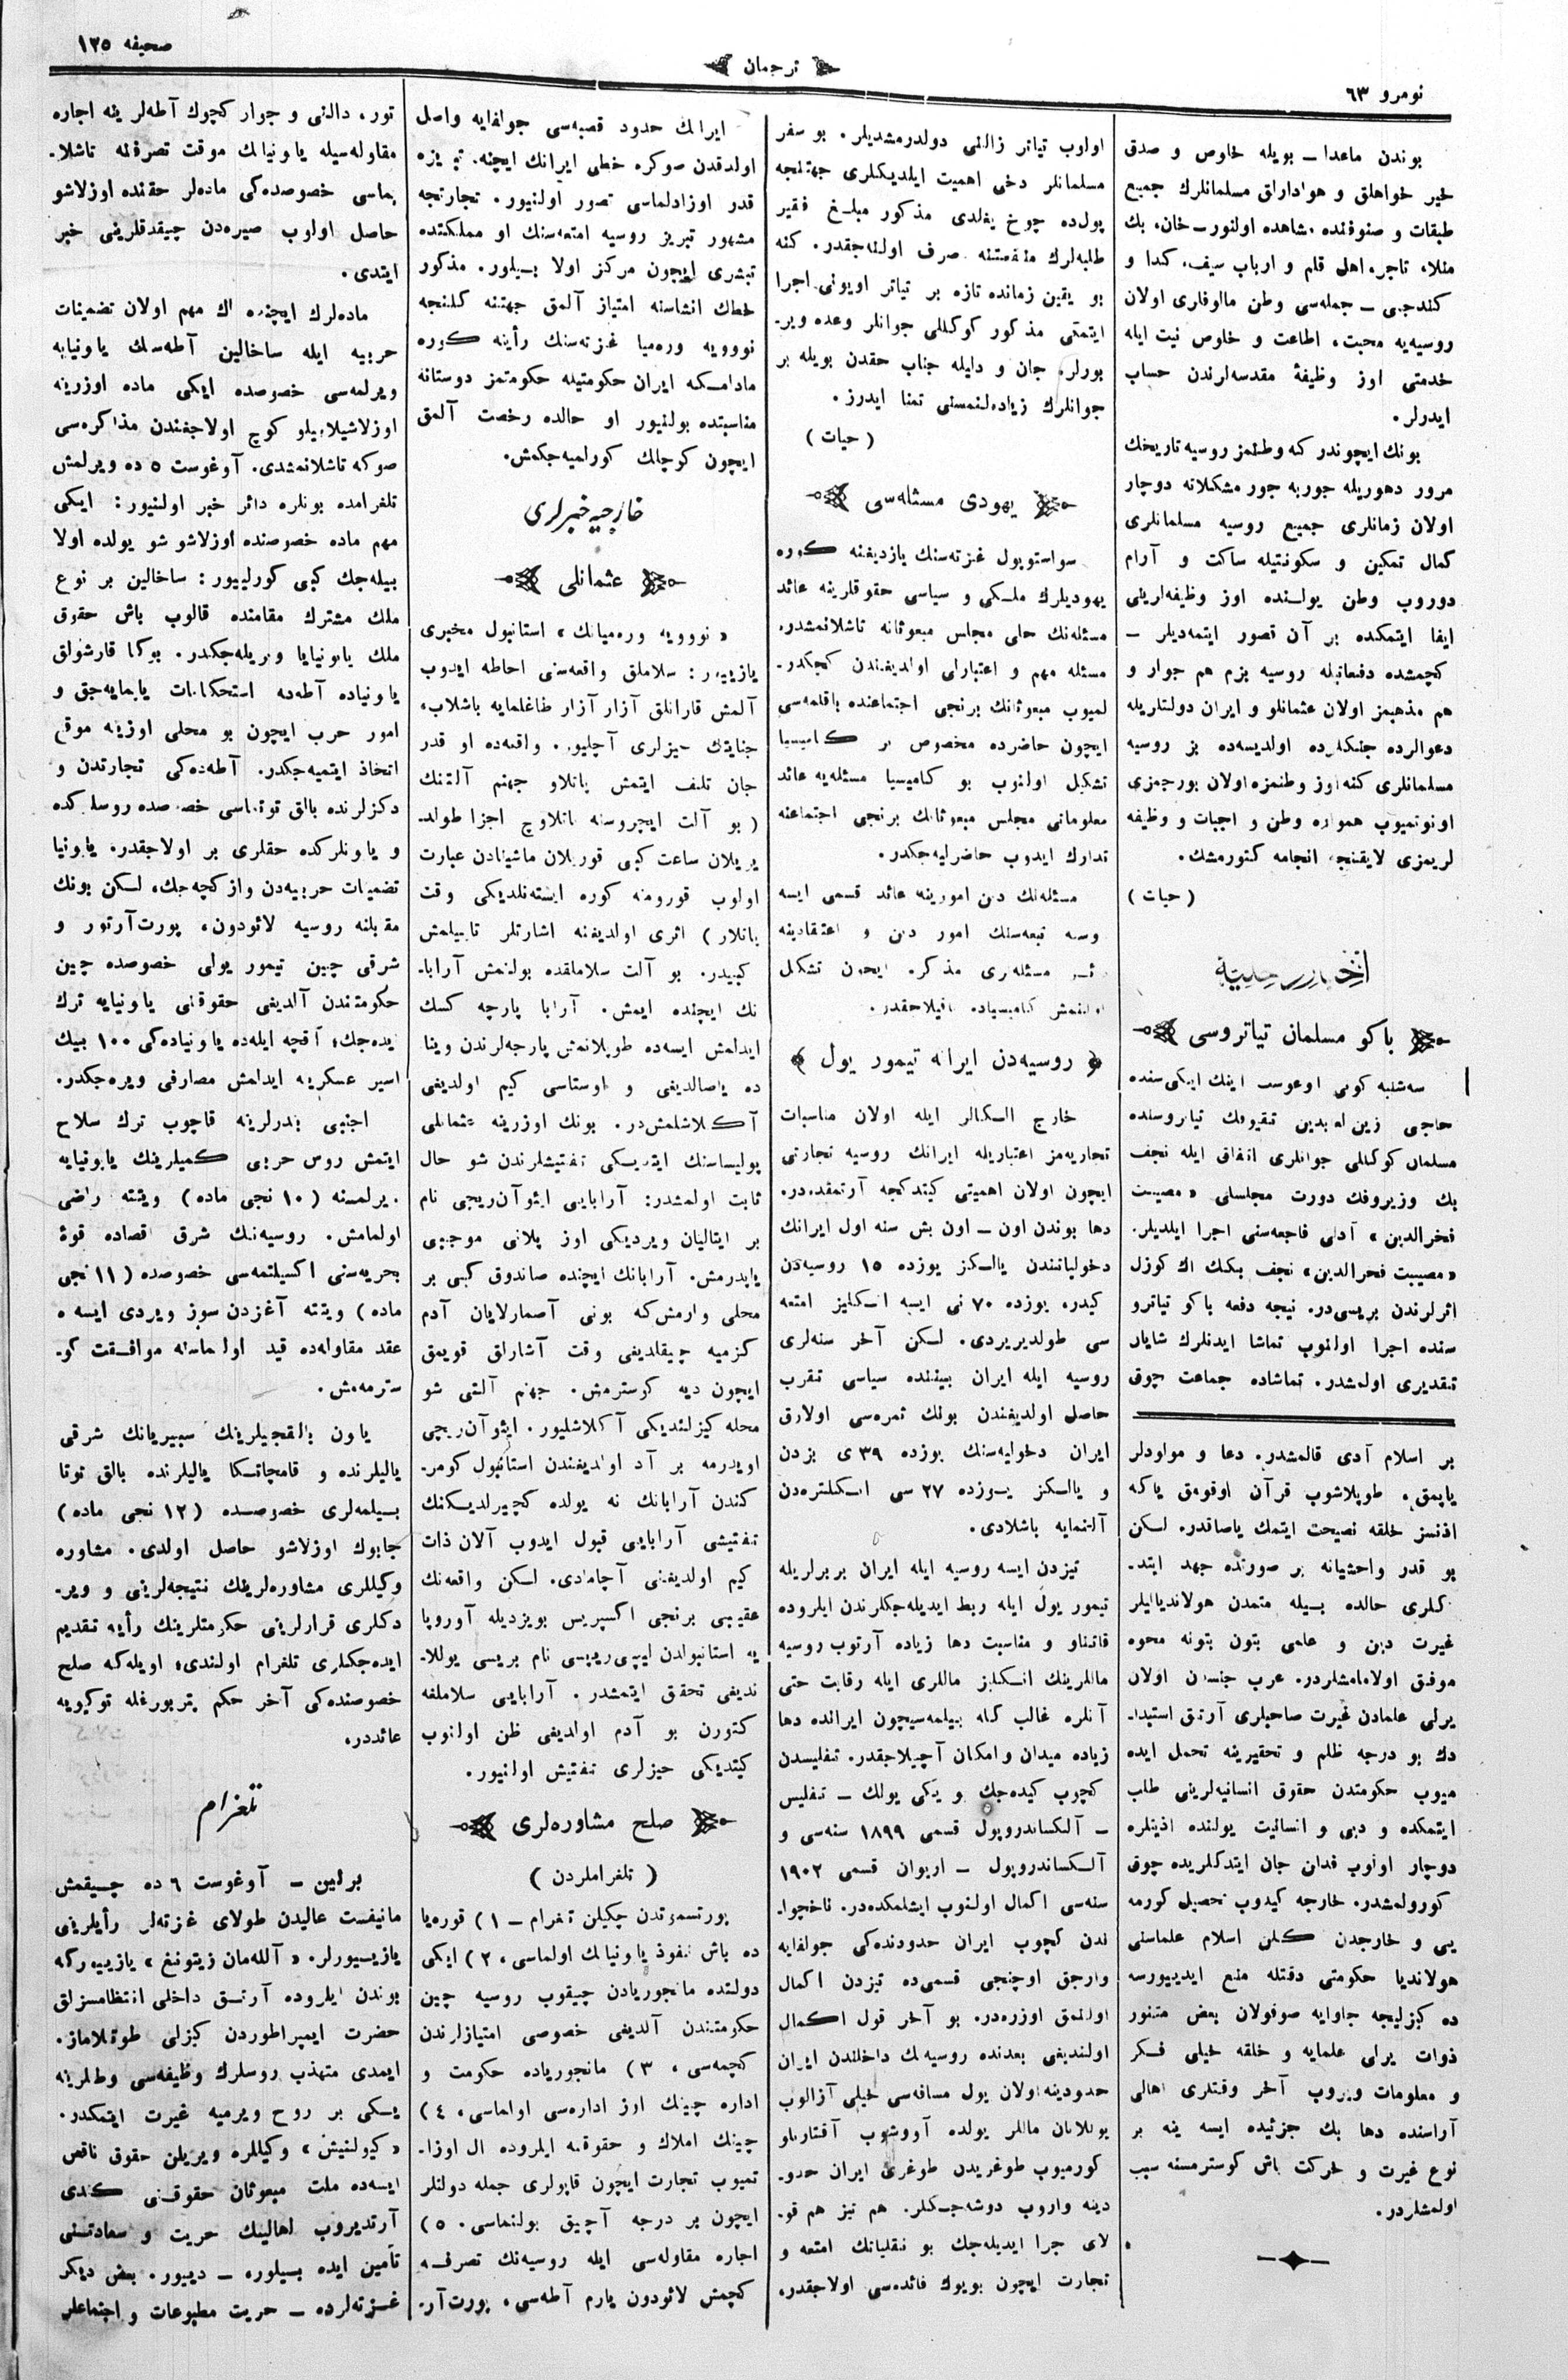 نومرو ٦٣
ترجمان
صحیفه ١٢٥
بوندن ماعدا ــ بویله خلوص و صدق
خیر خواهلق و هوادارلق مسلمانلرك جمیع
طبقات و صنوفنده مشاهده اولنور ــ خان، بك
منلا، تاجر، اهل قلم و ارباب سیف، كدا و
كندجی ــ جمله‌سی وطن مألوفلری اولان
روسیه‌یه محبت، اطاعت و خلوص نیت ایله
خدمتی اوز وظیفهٔ مقدسه‌لرندن حساب
ایدرلر.
بونك ایچوندر كه وطنمز روسیه تاریخك
مرور دهوریله جوربه جور مشكلاته دوچار
اولان زمانلری جمیع روسیه مسلمانلری
كمال تمكین و سكونتیله ساكت و آرام
دوروب وطن یولنده اوز وظیفه‌لرینی
ایفا ایتمكده بر آن قصور ایتمه‌دیلر ــ
كچمشده دفعاتیله روسیه بزم هم جوار و
هم مذهبمز اولان عثمانلو و ایران دولتلریله
دعوالرده جنكلرده اولدیسه‌ده بز روسیه
مسلمانلری كنه اوز وطنمزه اولان بورجمزی
اونوتمیوب همواره وطن و اجبات و وظیفه
لریمزی لایقنجه انجامه كتورمشك.
( حیات )
اخبار ملیه
باكو مسلمان تیاتروسی
سه‌شنبه كونی اوغوست اینك ایكی سنده
حاجی زین العابدین تقیوفك تیاتروسنده
مسلمان كوكللی جوانلری اتفاق ایله نجف
بك وزیروفك دورت مجلسلی « مصیبت
فخرالدین » آدلی فاجعه‌سنی اجرا ایلدیلر.
« مصیبت فخرالدین » نجف بكك اك كوزل
اثرلرندن بریسی‌در. نیجه دفعه باكو تیاترو
سنده اجرا اولنوب تماشا ایدنلرك شایان
تقدیری اولمشدر. تماشاده جماعت چوق
بر اسلام آدی قالمشدر. دعا و مولودلر
یاپمق، طوپلاشوب قرآن اوقومق یاكه
اذنسز خلقه نصیحت ایتمك یاصاقدر. لسكن
بو قدر واحشیانه بر صورتده جهد ایتد-
كلری حالده بیله متمدن هولاندیالیلر
غیرت دین و علمی بتون بتونه محوه
موفق اولامامشلردر. عرب جنسدن اولان
یرلی علمادن غیرت صاحبلری آرتق استبدا-
دك بو درجه ظلم و تحقیرینه تحمل ایده
میوب حكومتدن حقوق انسانیه‌لرینی طلب
ایتمكده و دینی و انسانیت یولنده اذیتلره
دوچار اولوب فدای جان ایتدكلریده چوق
كورولمشدر. خارجه كیدوب تحصیل كورمه
یی و خارجدن كلن اسلام علماسنی
هولاندیا حكومتی دقتله منع ایدییورسه
ده كیزلیجه جاوایه صوقولان بعض متنور
ذوات یرلی علمایه و خلقه خیلی فكر
و معلومات ویروب آخر وقتلری اهالی
آراسنده دها بك جزئیده ایسه ینه بر
نوع غیرت و حركت باش كوسترمسنه سبب
اولمشلردر.
اولوب تیاتر زالنی دولدرمشدیلر. بو سفر
مسلمانلر دخی اهمیت ایلدیكلری جهتنجه
پول‌ده چوخ یغلدی مذكور مبلغ فقیر
طلبه‌لرك منفعتنه صرف اولنه‌جقدر. كنه
بو یقین زمانده تازه بر تیاتر اویونی اجرا
ایتمكی مذكور كوكللی جوانلر وعده ویر-
یورلر. جان و دلیله جناب حقدن بویله بر
جوانلرك زیاده‌لنمسنی تمنا ایدرز.
( حیات )
یهودی مسئله‌سی
سواستوپول غزته‌سنك یازدیغنه كوره
یهودیلرك ملكی و سیاسی حقوقلرینه عائد
مسئله‌نك حلی مجلس مبعوثانه تاشلانمشدر.
مسئله مهم و اعتبارلی اولدیغندن كچكدر-
لمیوب مبعوثانك برنجی اجتماعنده باقلمه‌سی
ایچون حاضرده مخصوص بر كامیسیا
تشكیل اولنوب بو كامیسیا مسئله‌یه عائد
معلوماتی مجلس مبعوثانك برنجی اجتماعنه
تدارك ایدوب حاضرلیه‌جكدر.
مسئله‌نك دین امورینه عائد قسمی ایسه
تبعه‌سنك امور دین و اعتقادینه
مسئله‌لری مذكره ایچون تشكیل
اولنمش كامیسیاده باقیلاجقدر.
روسیه‌دن ایرانه تیمور یول
خارج السكالر ایله اولان مناسبات
تجاریه‌مز اعتباریله ایرانك روسیه تجارتی
ایچون اولان اهمیتی كیتدكجه آرتمقده‌در.
دها بوندن اون ــ اون بش سنه اول ایرانك
دخولیاتندن یالكز یوزده ١٥ روسیه‌دن
كیدر، یوزده ٧٠ نی ایسه انكلیز امتعه
سی طولدیریردی. لسكن آخر سنه‌لری
روسیه ایله ایران بیننده سیاسی تقرب
حاصل اولدیغندن بونك ثمره‌سی اولارق
ایران دخولیه‌سنك یوزده ٣٩ ی بزدن
و یالكز یوزده ٢٧ سی انكلتره‌دن
آلنمایه باشلادی.
تیزدن ایسه روسیه ایله ایران بربرلریله
تیمور یول ایله ربط ایدیله‌جكلرندن ایلروده
قاتناو و مناسبت دها زیاده آرتوب روسیه
ماللرینك انكلیز ماللری ایله رقابت حتی
آنلره غالب كله بیلمه‌سیچون ایرانده دها
زیاده میدان و امكان آچیلاجقدر. تفلیسدن
كچوب كیده‌جك بو یكی یولك ــ تفلیس
ــ آلكساندروپول قسمی ١٨٩٩ سنه‌سی و
آلكساندروپول ــ اریوان قسمی ١٩٠٢
سنه‌سی اكمال اولنوب ایشلمكده‌در. ناخچوا-
ندن كچوب ایران حدودنده‌كی جولفایه
وارجق اوچنجی قسمی‌ده تیزدن اكمال
اولنمق اوزره‌در. بو آخر قول اكمال
اولندیغی بعدنده روسیه‌نك داخلندن ایران
حدودینه اولان یول مسافه‌سی خیلی آزالوب
یوللانان ماللر یولده آووشوب آقتارماو
كورمیوب طوغریدن طوغری ایران حدو-
دینه واروب دوشه‌جكلر. هم تیز هم قو-
لای جرا ایدیله‌جك بو نقلیاتك امتعه و
تجارت ایچون بویوك فائده‌سی اولاجقدر.
ایرانك حدود قصبه‌سی جولفایه واصل
اولدقدن صوكره خطی ایرانك ایچنه، تبریزه
قدر اوزادلماسی تصور اولنیور. تجارتجه
مشهور تبریز روسیه امتعه‌سنك او مملكتده
تبشری ایچون مركز اولا بیلور. مذكور
خطك انشاسنه امتیاز آلمق جهتنه كلنجه
نوویه وره‌میا غزته‌سنك رأینه كوره
مادامكه ایران حكومتیله حكومتمز دوستانه
مناسبتده بولنیور او حالده رخصت آلمق
ایچون كوچلك كورلمیه‌جكمش.
خارجیه خبرلری
عثمانلی
« نوویه وره‌میانك » استانبول مخبری
یازییور : سلاملق واقعه‌سنی احاطه ایدوب
آلمش قارانلق آزار آزار طاغلمایه باشلاب،
جنایتك سیزلری آچلیور. واقعه‌ده او قدر
جان تلف ایتمش پاتلاو جهنم آلتنك
( بو آلت ایچروسنه پاتلاوچ اجزا طولد-
یریلان ساعت كبی قوریلان ماشینادن عبارت
اولوب قورومنه كوره ایسته‌نلدیكی وقت
پاتلار ) اثری اولدیغنه اشارتلر تاپیلمش
كبیدر. بو آلت سلاملقده بولنمش آرابا-
نك ایچنده ایمش. آرابا پارچه كسك
ایدلمش ایسه‌ده طوپلانمش پارچه‌لرندن وینا
ده یاصالدیغی و اوستاسی كیم اولدیغی
آكلاشلمش‌در. بونك اوزرینه عثمانلی
پولیساسنك ایتدیكی تفتیشلرندن شو حال
ثابت اولمشدر : آرابایی ایثوآن‌ریچی نام
بر ایتالیان ویردیكی اوز پلانی موجبی
یاپدرمش. آرابانك ایچنده صاندوق كبی بر
محلی وارمش‌كه بونی آصمارلایان آدم
كزمیه چیقلدیغی وقت آشارلق قویمق
ایچون دیه كوسترمش. جهنم آلتی شو
محله كیزلندیكی آكلاشلیور. ایثوآن‌ریچی
اویدرمه بر آد اولدیغندن استانبول كومر-
كندن آرابانك نه یولده كچیرلدیكنك
تفتیشی آرابایی قبول ایدوب آلان ذات
كیم اولدیغنی آچامادی. لسكن واقعه‌نك
عقیبی برنجی اكسپریس پویزدیله آوروپا
یه استانبولدن لیپی‌ریپسی نام بریسی یوللا-
ندیغی تحقق ایتمشدر. آرابایی سلاملغه
كتورن بو آدم اولدیغی ظن اولنوب
كیتدیكی حیزلری تفتیش اولنیور.
صلح مشاوره‌لری
( تلغراملردن )
پورتسموتدن چكیلن تلغرام ــ ١ ) قوره‌یا
ده باش نفوذ یاپونیانك اولماسی، ٢ ) ایكی
دولتده مانجوریادن چیقوب روسیه چین
حكومتندن آلدیغی خصوصی امتیازلرندن
كچمه‌سی، ٣ ) مانجوریاده حكومت و
اداره چینك اوز اداره‌سی اولماسی، ٤ )
چینك املاك و حقوقنه ایلروده ال اوزا-
تمیوب تجارت ایچون قاپولری جمله دولتلر
ایچون بر درجه آچیق بولنماسی. ٥ )
اجاره مقاوله‌سی ایله روسیه‌نك تصرفنه
كچمش لائودون یارم آطه‌سی، پورت آر-
تور، دالنی و جوار كچوك آطه‌لرینه اجاره
مقاوله‌سیله یاپونیانك موقت تصرفنه تاشلا-
نماسی خصوصده‌كی ماده‌لر حقنده اوزلاشو
حاصل اولوب صیره‌دن چیقدقلرینی خبر
ایتدی.
ماده‌لرك ایچنده اك مهم اولان تضمینات
حربیه ایله ساخالین آطه‌سنك یاپونیایه
ویرلمه‌سی خصوصده ایكی ماده اوزرینه
اوزلاشیلابیلو كوچ اولاجغندن مذاكره‌سی
صوكه تاشلانمشدی. آوغوست ٥ ده ویرلمش
تلغرامده بونلره دائر خبر اولنیور : ایكی
مهم ماده خصوصنده اوزلاشو شو یولده اولا
بیله‌جك كبی كورلییور : ساخالین بر نوع
ملك مشترك مقامنده قالوب باش حقوق
ملك یاپونیایا ویریله‌جكدر. بوكا قارشولق
یاپونیاده آطه‌ده استحكامات یاپمایه‌جق و
امور حرب ایچون بو محلی اوزینه موقع
اتخاذ ایتمیه‌جكدر. آطه‌ده‌كی تجارتدن و
دكزلرنده بالق توتماسی خصوصده روسلركده
و یاپونلركده حقلری بر اولاجقدر. یاپونیا
تضمینات حربیه‌دن وازكچه‌جك، لسكن بونك
مقبلنه روسیه لائودون، پورت‌آرتور و
شرقی چین تیمور یولی خصوصده چین
حكومتندن آلدیغی حقوقنی یاپونیایه ترك
ایده‌جك؛ آقچه ایله‌ده یاپونیاده‌كی ١٠٠ بیك
اسیر عسكرینه ایدلمش مصارفی ویره‌جكدر.
اجنبی بندرلرینه قاچوب ترك سلاح
ایتمش روس حربی كمیلرینك یاپونیایه
ویرلمسنه ( ١٠ نجی ماده ) ویتته راضی
اولمامش. روسیه‌نك شرق اقصاده قوهٔ
بحریه‌سنی اكسیلتمه‌سی خصوصده ( ١١ نجی
ماده ) ویتته آغزدن سوز ویردی ایسه ه
عقد مقاوله‌ده قید اولماسنه موافقت كو-
سترمه‌مش.
یاپون بالقجیلرینك سیبیریانك شرقی
یالیلرنده و قامچاتكا یالیلرنده بالق توتا
بیلمه‌لری خصوصده ( ١٢ نجی ماده )
چاپوك اوزلاشو حاصل اولدی. مشاوره
وكیللری مشاوره‌لرینك نتیجه‌لرینی و ویر-
دكلری قرارلرینی حكومتلرینك رأینه تقدیم
ایده‌جكلری تلغرام اولندی؛ اویله‌كه صلح
خصوصنده‌كی آخر حكم پتربورغله توكیویه
عائددر.
تلغرام
برلین ــ آوغوست ٦ ده چیقمش
مانیفست عالیدن طولای غزته‌لر رأیلرینی
یازیسیورلر. « آلله‌مان زیتونغ » یازییوركه
بوندن ایلروده آرتق داخلی انتظامسزلق
حضرت ایمپراطوردن كیزلی طوتلاماز.
ایمدی متهذب روسلرك وظیفه‌سی وطنلرینه
یكی بر روح ویرمیه غیرت ایتمكدر.
« كیولنیش » وكیللره ویریلن حقوق ناقص
ایسه‌ده ملت مبعوثان حقوقنی كندی
آرتدیروب اهالینك حریت و سعادتنی
تأمین ایده بیلور، ــ دییور. بعض دیكر
غزته‌لرده ــ حریت مطبوعات و اجتماعلر